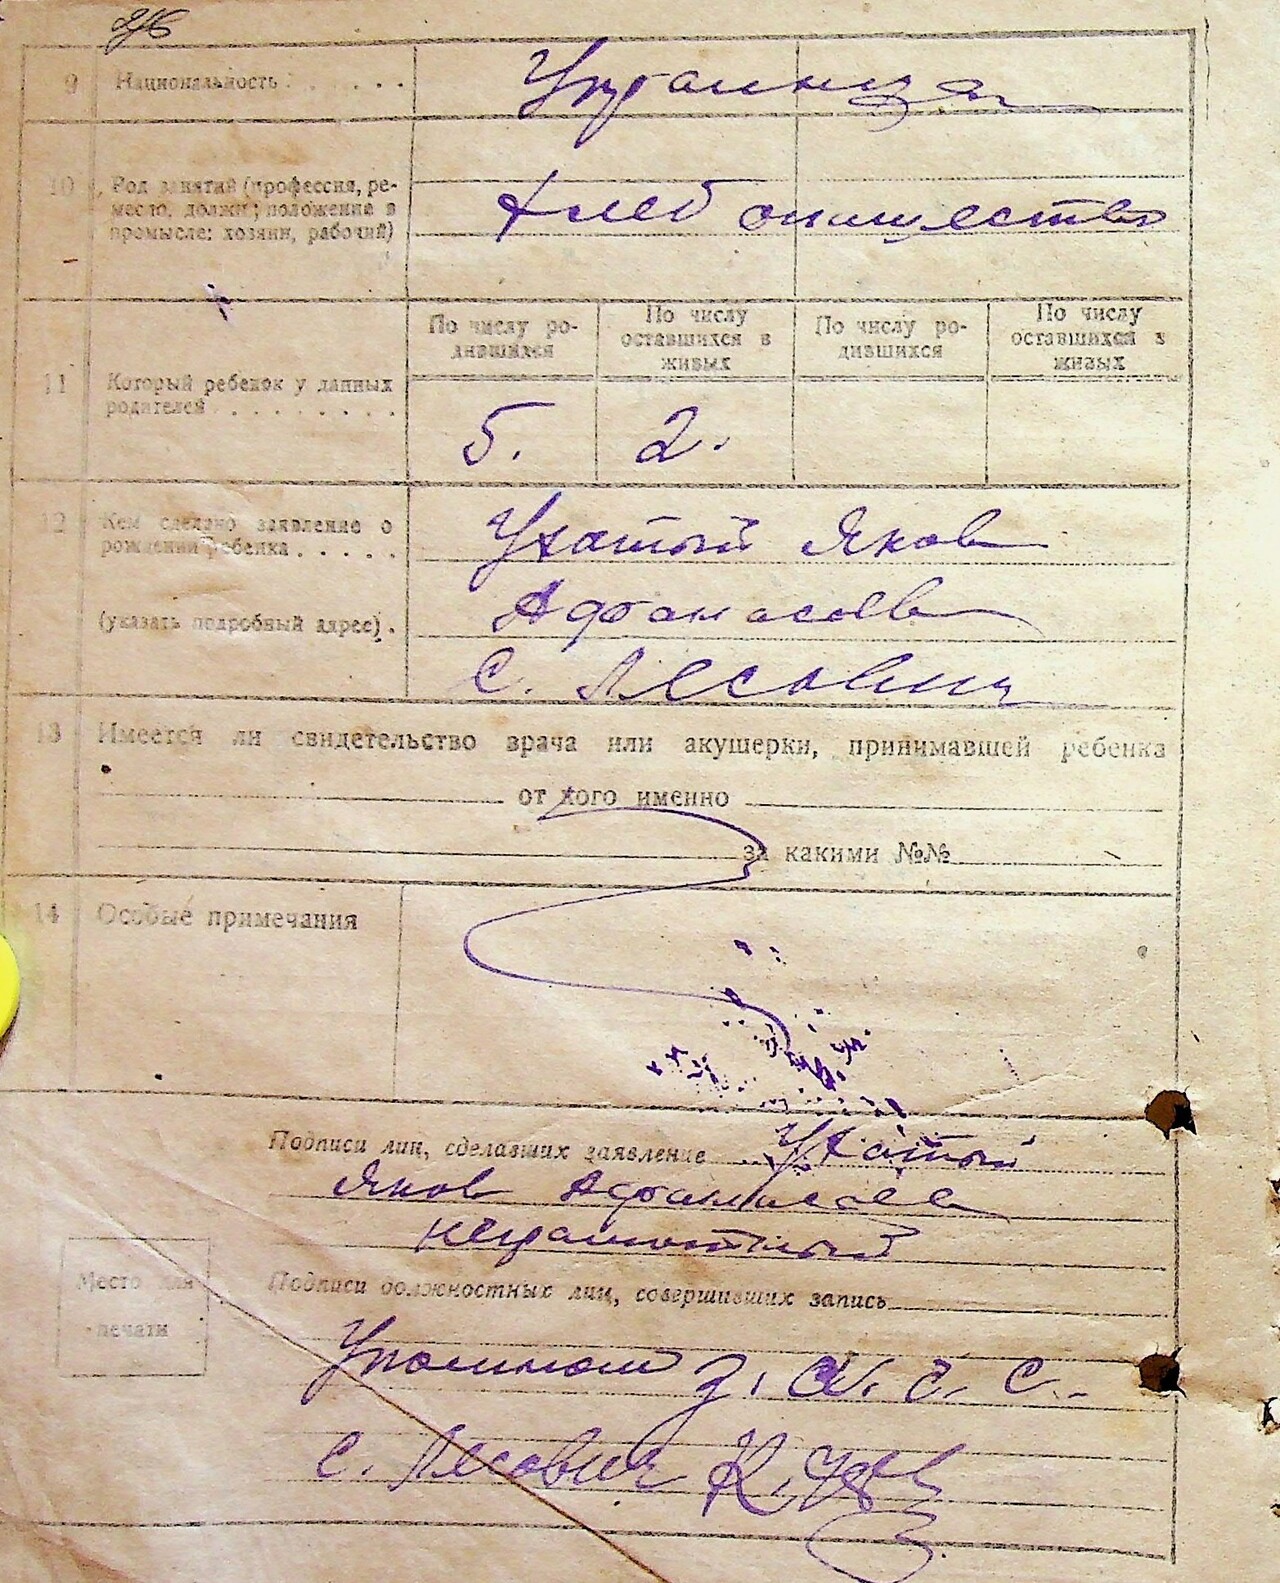 9 Национальность . . . . . . Украинца
10 Род занятий (профессия, ре-
месло, должн.; положение в
промысле: хозяин, рабочий)
Хлеб
По числу ро-
дившихся
По числу
оставшихся в
живых
По числу ро-
дившихся
По числу
оставшихся в
живых
11 Который ребенок у данных
родителей . . . . . . . .
5. 2.
12 Кем сделано заявление о
рождении ребенка . . . . .
(указать подробный адрес) .
Ухатый Яков
Афанасоев
С. Лесовичи
13 Имеется ли свидетельство врача или акушерки, принимавшей ребенка
от кого именно
за какими №№
14 Особые примечания
Подписи лиц, сделавших заявление Ухатый
Яков Афанасоев
неграмотный
Место для
печати
Подписи должностных лиц, совершивших запись
С. Лесовичи